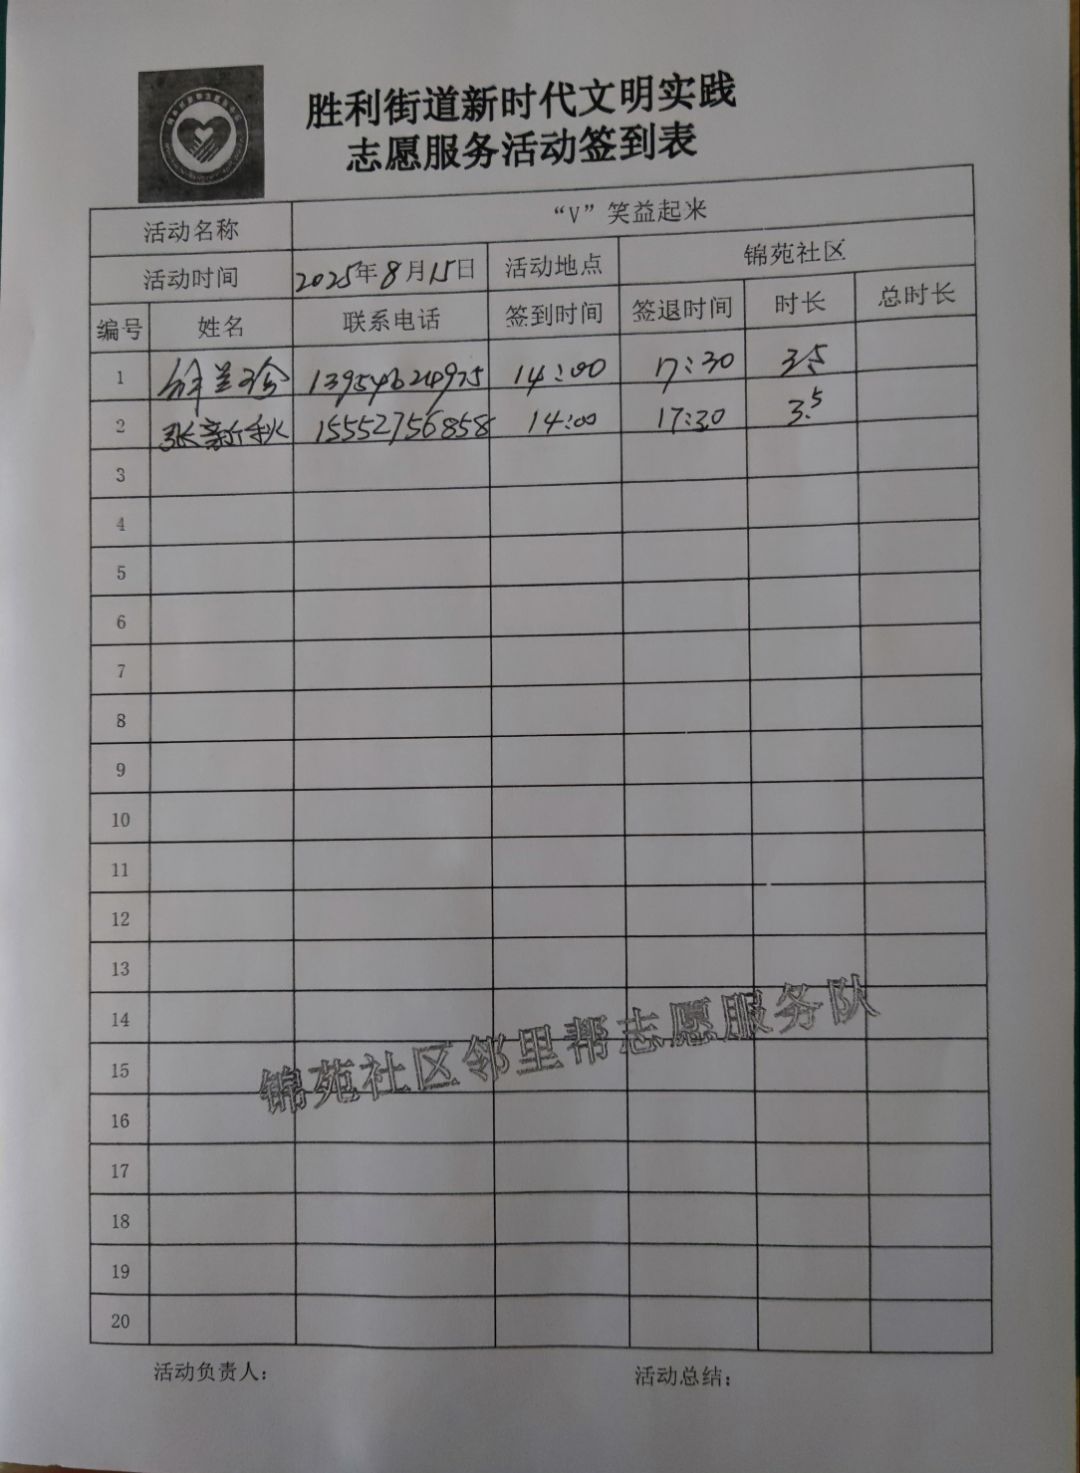 胜利街道新时代文明实践
志愿服务活动签到表
活动名称 “V”笑益起来
活动时间 2025年8月15日 活动地点 锦苑社区
编号 姓名 联系电话 签到时间 签退时间 时长 总时长
1 兰珍 13954624975 14:00 17:30 3.5
2 张新秋 15552756858 14:00 17:30 3.5
3
4
5
6
7
8
9
10
11
12
13
14
15
16
17
18
19
20
锦苑社区邻里帮志愿服务队
活动负责人： 活动总结：